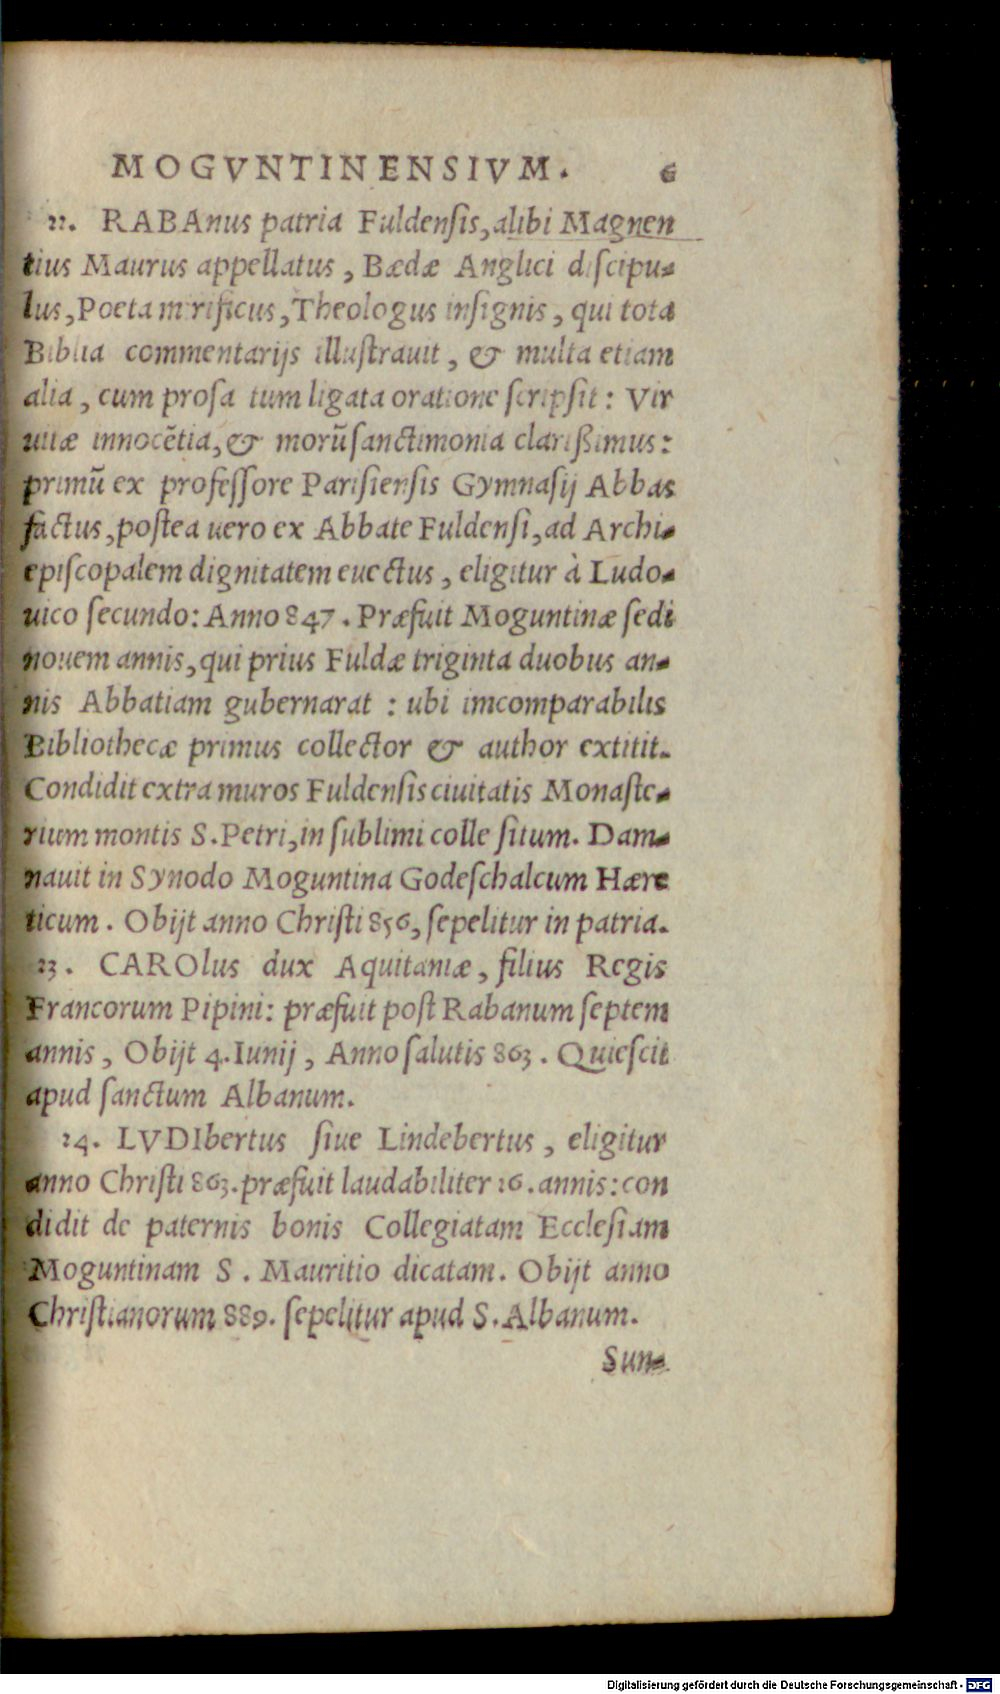 MOGVNTINENSIVM. 6
22. RABAnus patria Fuldensis, alibi Magnen
tius Maurus appellatus, Bædæ Anglici discipu-
lus, Poeta mirificus, Theologus insignis, qui tota
Biblia commentarijs illustrauit, & multa etiam
alia, cum prosa tum ligata oratione scripsit: Vir
uitæ innocẽtia, & morũ sanctimonia clarißimus:
primũ ex professore Parisiensis Gymnasij Abbas
factus, postea uero ex Abbate Fuldensi, ad Archi-
episcopalem dignitatem euectus, eligitur à Ludo-
uico secundo: Anno 847. Præfuit Moguntinæ sedi
nouem annis, qui prius Fuldæ triginta duobus an-
nis Abbatiam gubernarat : ubi imcomparabilis
Bibliothecæ primus collector & author extitit.
Condidit extra muros Fuldensis ciuitatis Monaste-
rium montis S. Petri, in sublimi colle situm. Dam-
nauit in Synodo Moguntina Godeschalcum Hære
ticum. Obijt anno Christi 856, sepelitur in patria.
23. CAROlus dux Aquitaniæ, filius Regis
Francorum Pipini: præfuit post Rabanum septem
annis, Obijt 4. Iunij, Anno salutis 863. Quiescit
apud sanctum Albanum.
24. LVDIbertus siue Lindebertus, eligitur
anno Christi 863. præfuit laudabiliter 26. annis: con
didit de paternis bonis Collegiatam Ecclesiam
Moguntinam S. Mauritio dicatam. Obijt anno
Christianorum 889. sepelitur apud S. Albanum.
Sun-
Digitalisierung gefördert durch die Deutsche Forschungsgemeinschaft - DFG